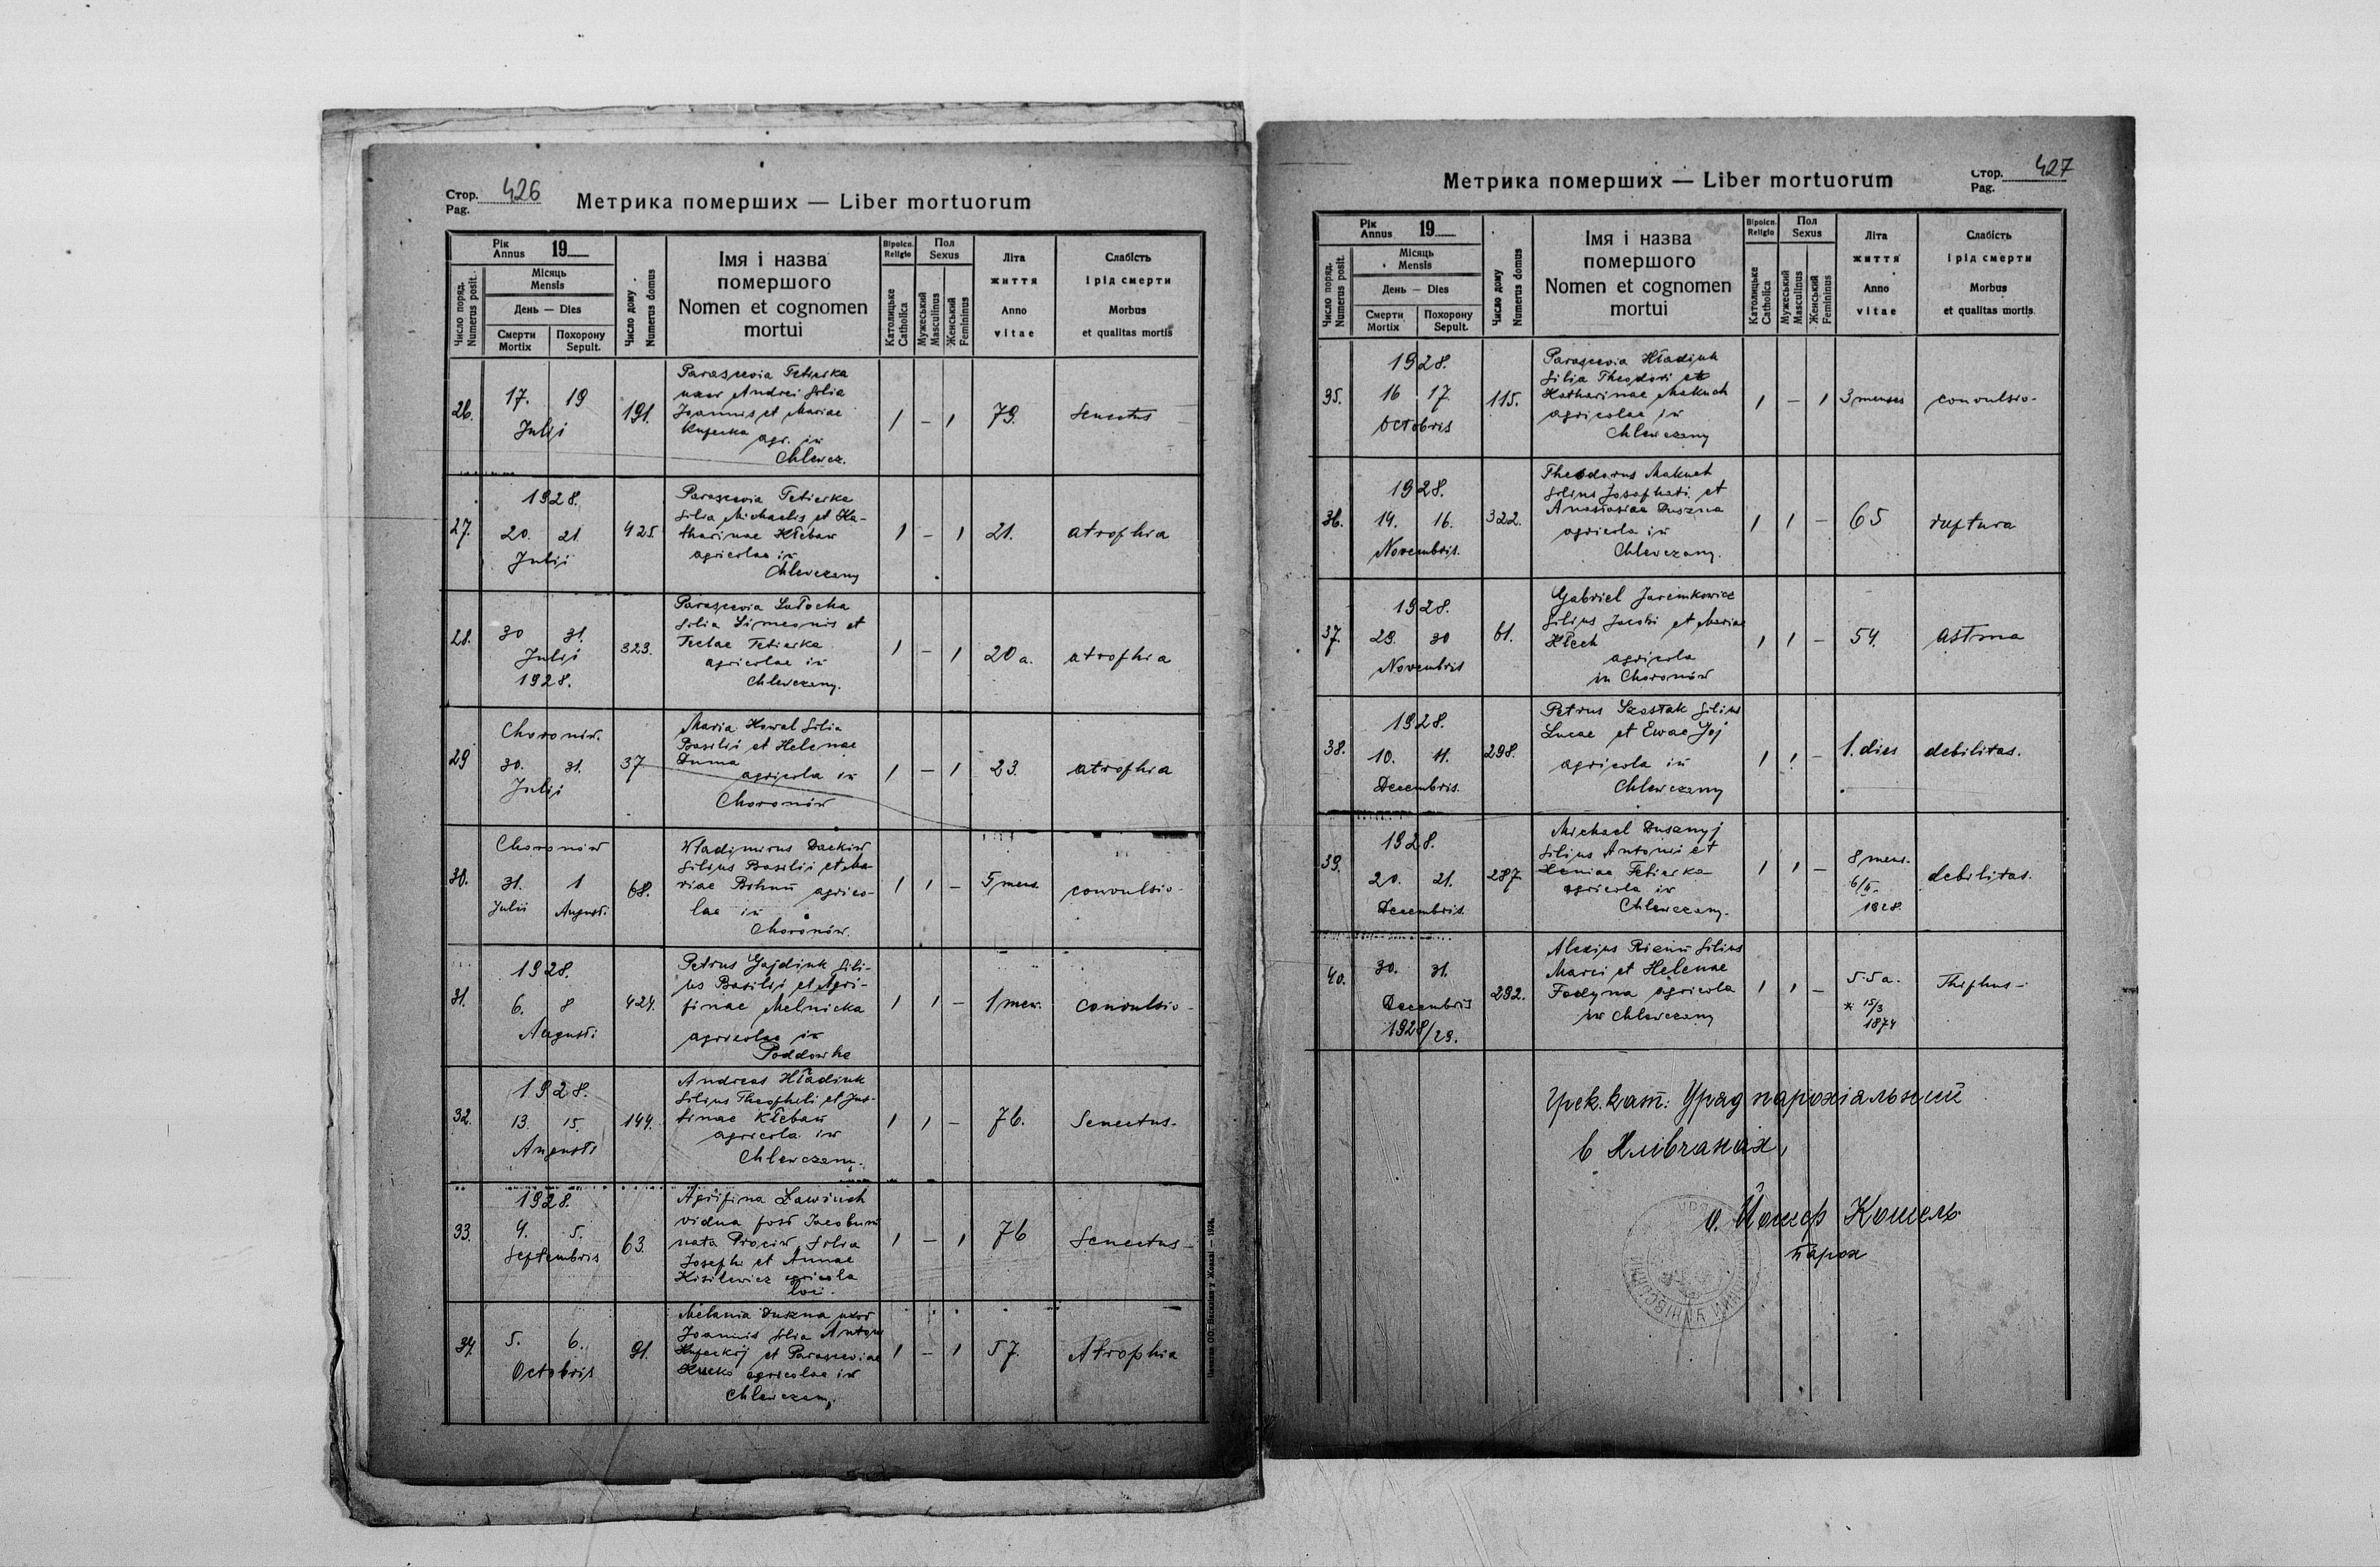 Стор. 426
Pag.
Метрика померших — Liber mortuorum
Рік Annus 19
Місяць Mensis
День — Dies
Смерти Mortix
Похорону Sepult.
Число поряд. Numerus posit.
Число дому Numerus domus
Імя і назва
помершого
Nomen et cognomen
mortui
Віроісп. Religio
Католицьке Catholica
Пол Sexus
Мужеський Masculinus
Женський Femininus
Літа
життя
Anno
vitae
Слабість
і рід смерти
Morbus
et qualitas mortis
26. 17. 19 Julji 191. Parascevia Fetierka
uxor Andrei filia
Joannis et Mariae
agr. in
Chlewcz.
1 – 1 79. Senectus
27. 1928. 20. 21. Julji 425. Parascevia Fetierka
filia Michaelis et Ka-
tharinae Kłeban
agricolae in
Chlewczany
1 – 1 21. atrophia
28. 30 31. Julji 1928. 323. Parascevia Sałocha
filia Simeonis et
Teclae Fetierka
agricolae in
Chlewczany.
1 – 1 20 a. atrophia
29 Choronów. 30. 31. Julji 37 Maria Kowal filia
Basilii et Helenae
Duma
agricola in
Choronów
1 – 1 23. atrophia
30. Choronów 31. Julii 1 Augusti 68. Władimirus Dackiw
filius Basilii et Ma-
riae agrico-
lae in
Choronów.
1 1 – 5 mens. convulsio-
31. 1928. 6. 8 Augusti 424. Petrus Gajdiuk fili-
us Basilii et Agri-
finae Melnicka
agricolae in
Poddowhe
1 1 – 1 men. convulsio-
32. 1928. 13. 15. Augusti 144. Andreas Hładiuk
filius Theophili et Jus-
tinae Kłeban
agricola in
Chlewczany.
1 1 – 76. Senectus-
33. 1928. 4. 5. Septembris 63. Agrifina Ławriuch
vidua post Jacobum
nata Prociw, filia
Josephi et Annae
Kisilewicz agricola
loci.
1 – 1 76 Senectus-
34. 5. 6. Octobris 91. Melania Duszna uxor
Joannis filia Antoni
et Parasceviae
agricolae in
Chlewczany.
1 – 1 57. Atrophia
Стор. 427
Pag.
Метрика померших — Liber mortuorum
Рік Annus 19
Місяць Mensis
День — Dies
Смерти Mortix
Похорону Sepult.
Число поряд. Numerus posit.
Число дому Numerus domus
Імя і назва
помершого
Nomen et cognomen
mortui
Віроісп. Religio
Католицьке Catholica
Пол Sexus
Мужеський Masculinus
Женський Femininus
Літа
життя
Anno
vitae
Слабість
і рід смерти
Morbus
et qualitas mortis
35. 1928. 16 17. Octobris 115. Parascevia Hładiuk
filia Theodori et
Katharinae Makuch
agricolae in
Chlewczany
1 – 1 3 menses convulsio-
36. 1928. 14. 16. Novembris. 322. Theodorus Makuch
filius Josaphati et
Anastasiae Duszna
agricola in
Chlewczany.
1 1 – 65 ruptura
37. 1928. 29. 30 Novembris 61. Gabriel Jaremkowicz
filius Jacobi et Mariae
Kłech
agricola
in Choronów
1 1 – 54. astma
38. 1928. 10. 11. Decembris. 298. Petrus Szostak filius
Lucae et Ewae Goj
agricola in
Chlewczany
1 1 – 1. dies debilitas.
39. 1928. 20. 21. Decembris. 287 Michael Dusznyj
filius Antonii et
Xeniae Fetierka
agricola in
Chlewczany.
1 1 – 8 mens.
1928.
debilitas.
40. 30. 31. Decembris 1928/29. 292. Alexius filius
Marci et Helenae
Fedyna agricola
in Chlewczany
1 1 – 55 a.
* 15/3
1874
Thiphus-
Грек. кат. Уряд парохіяльний
в Хлівчанах,
о. Йосиф Кошель
парох